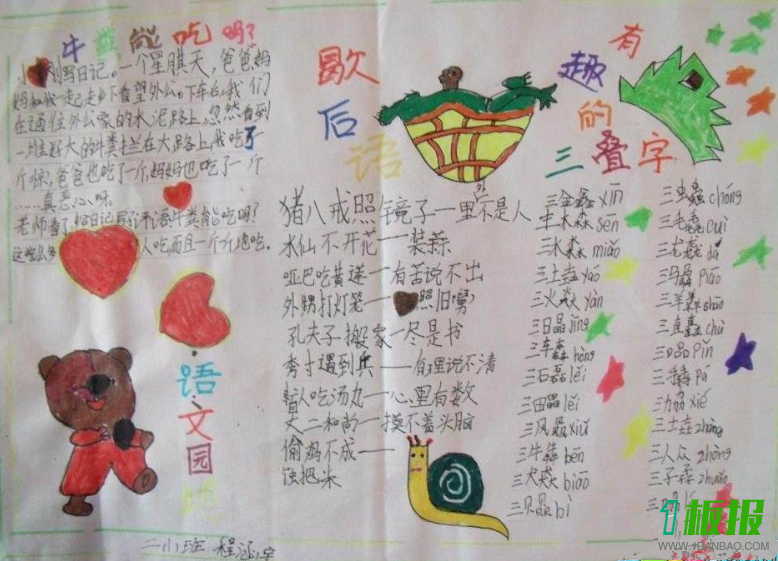 牛粪能吃吗?
小刚写日记。一个星期天,爸爸妈
妈和我一起走乡下看望外公。下车后,我们
在通往外公家的水泥路上,忽然看到
一堆好大的牛粪拦在大路上,我吃了
个惊,爸爸也吃了一个,妈妈也吃了一个
……真恶心呀。
老师看了给日记写评语:牛粪能吃吗?
这么多人吃而且一个个地吃。
语文园地
歇后语
猪八戒照镜子—里不是人
水仙不开花—装蒜
哑巴吃黄连—有苦说不出
外甥打灯笼—照旧舅?
孔夫子搬家—尽是书
秀才遇到兵—有理说不清
瞎人吃汤丸—心里有数
大二和尚—摸不着头脑
偷鸡不成—
蚀把米
有趣的三叠字
三金鑫xīn
三木森sēn
三水淼miǎo
三土垚yáo
三火焱yàn
三日晶jīng
三车轰hōng
三石磊lěi
三田畾lěi
三风飍xiū
三牛犇bēn
三犬猋biāo
三贝贔bì
三虫蟲chóng
三毛毳cuì
三龙龘dá
三马骉piāo
三羊羴shān
三直矗chù
三口品Pǐn
三力劦xié
三人众zhòng
三子孨zhuǎn
二小班 程
1板报
WWW.1BANBAO.COM